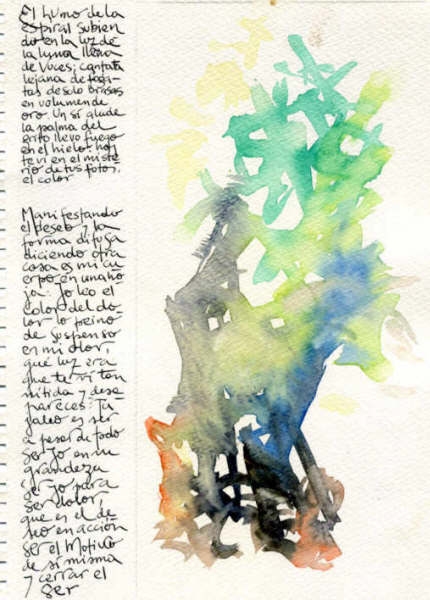 El humo de la
espiral subien
do en la luz de
la luna llena
de voces; cantata
lejana de
tas desolo brasas
en volumen de
oro. Un sí alude
la palma del
grito llevo fuego
en el hielo: hoy
te vi en el miste
rio de tus fotos,
el color
Manifestando
el deseo y la
forma difusa
diciendo otra
cosa es mi cu
erpo en una ho
ja: Yo leo el
color del do
lor lo peino
de suspenso
en mi olor,
qué luz era
que te vi tan
nítida y desa
pareces: Tu
jaleo es ser
a pesar de todo
ser yo en su
grandeza
ser yo para
ser dolor,
que es el de
seo en acción
ser el Motivo
de sí misma
y cerrar el
ser